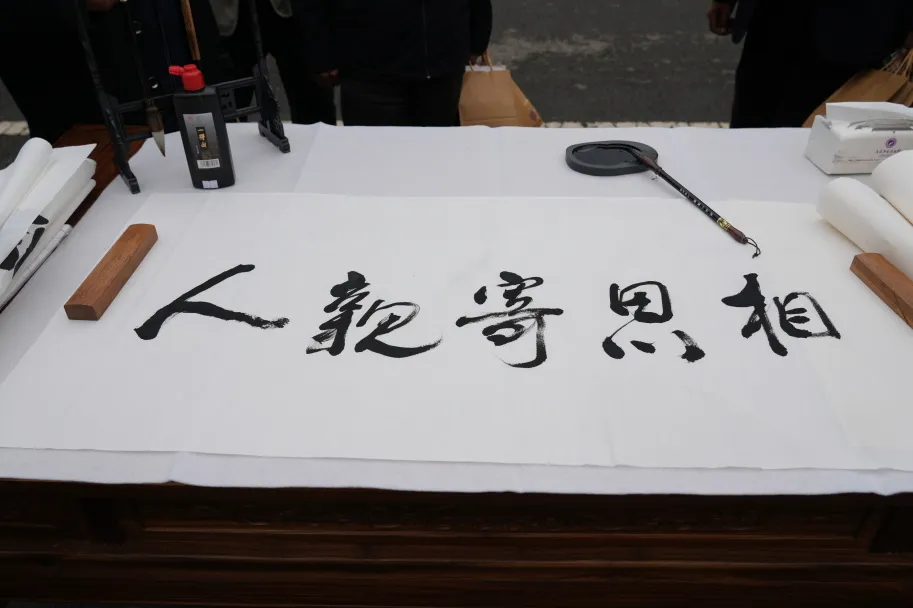 相思寄親人